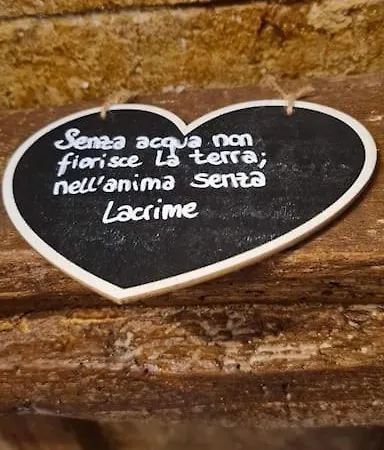 Senza acqua non
fiorisce la terra;
nell'anima senza
Lacrime